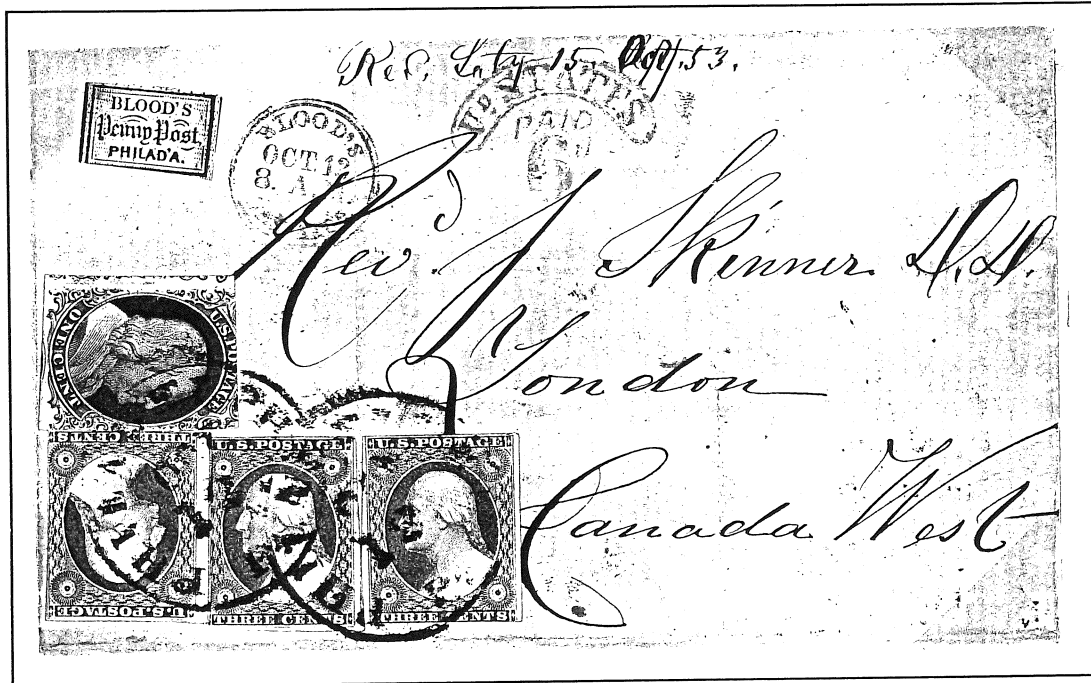 Rec. Saty 15 Oct. 53.
BLOOD'S
Penny Post,
PHILAD'A.
BLOOD'S
OCT 12
8. A
UD. STATES
PAID
6
Revd. J. Skinner D.D.
London
Canada West
U.S. POSTAGE
ONE CENT
U.S. POSTAGE
THREE CENTS
U.S. POSTAGE
THREE CENTS
U.S. POSTAGE
THREE CENTS